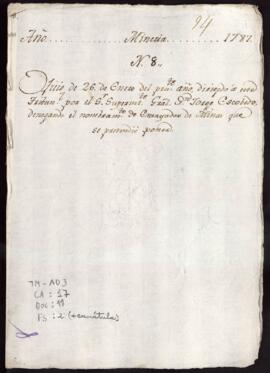 24
Año Mineria 1787
N. 8.
Oficio de 26. de Enero del pres.te año, dirigido a este
Tribun.l por el S.r Superint.te Gral. D.n Jorge Escobedo,
denegando el nombram.to de Ensayador de Minas que
se pretendió poner.
TM-AD3
CA: 17
DOC: 11
FS: 2 (+carátula)